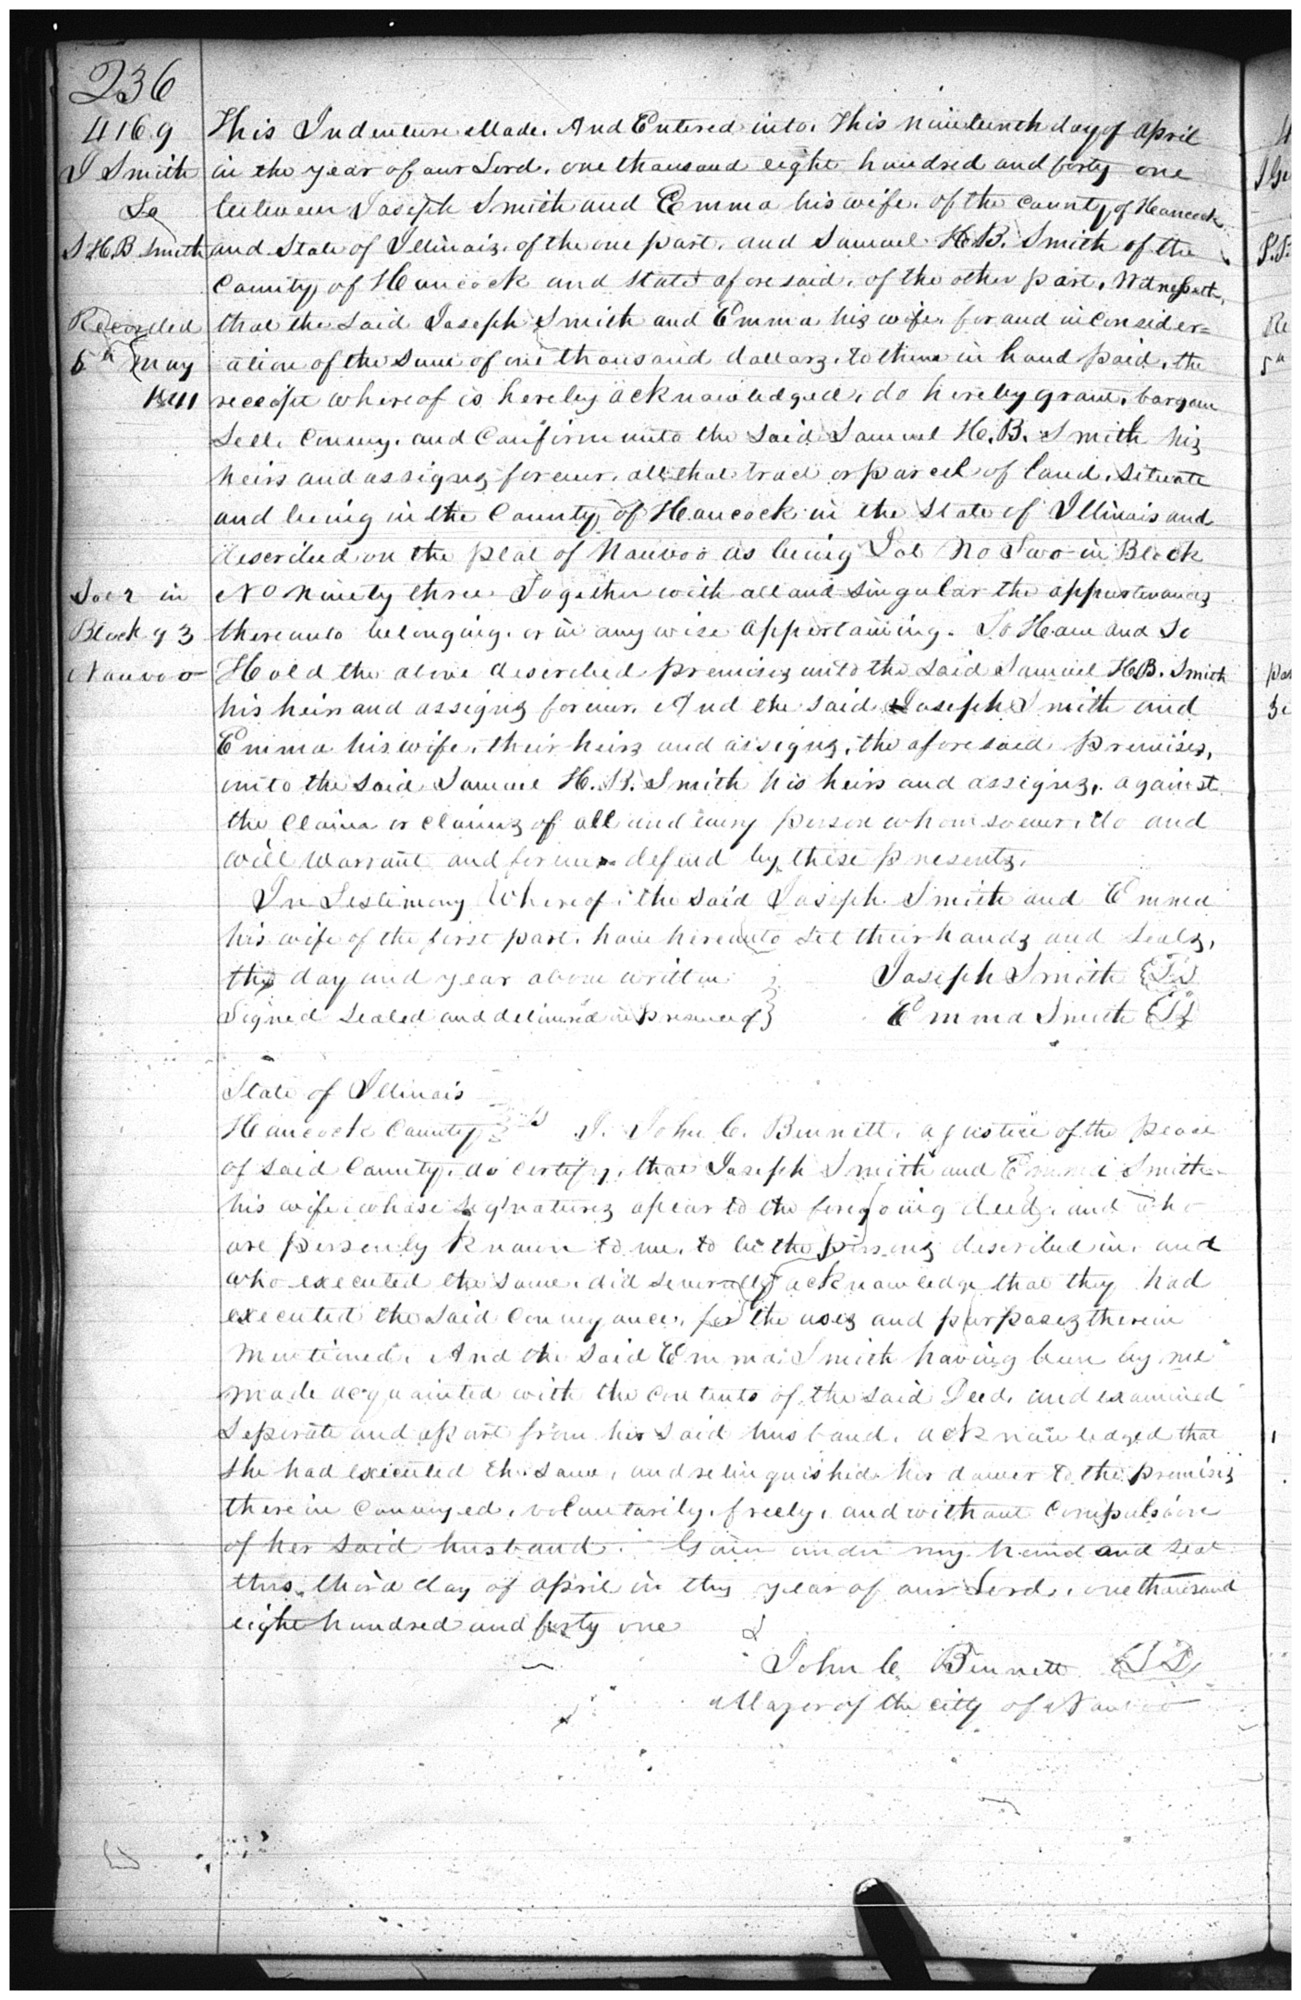 236
4169
J Smith
To
S H.B Smith
Recorded
5th May
1841
This Indenture Made. And Entered into. This nineteenth day of april
in the year of our Lord. one thousand eight hundred and forty one
between Joseph Smith and Emma his wife. of the county of Hancock
and State of Illinois. of the one part. and Samuel H.B. Smith of the
County of Hancock and State aforesaid. of the other part. Witnesseth,
that the said Joseph Smith and Emma his wife. for and in consider=
ation of the sum of one thousand dollars. to them in hand paid. the
receipt whereof is hereby acknowledged. do hereby grant. bargain
Sell. Convey. and Confirm unto the said Samuel H.B. Smith his
heirs and assigns forever. all that tract or parcel of land. situate
and being in the County of Hancock in the State of Illinois and
described on the plat of Nauvoo as being Lot No Two in Block
Lot 2 in
Block 93
Nauvoo
No Ninety three. Together with all and singular the appurtenances
thereunto belonging. or in any wise appertaining. To Have and To
Hold the above described premises unto the said Samuel H.B. Smith
his heirs and assigns forever. And the said Joseph Smith and
Emma his wife. their heirs and assigns. the aforesaid premises,
unto the said Samuel H.B. Smith his heirs and assigns. against
the claim or claims of all and every person whomsoever. do and
will Warrant and forever defend by these presents.
In Testimony Whereof. the said Joseph Smith and Emma
his wife of the first part. have hereunto set their hands and seals,
the day and year above written
Joseph Smith
Signed Sealed and delivered in presence of
Emma Smith
State of Illinois
Hancock County ss I. John C. Bennett. a justice of the peace
of said County. do certify. that Joseph Smith and Emma Smith
his wife. whose signatures apear to the foregoing deed. and who
are personly known to me. to be the persons described in. and
who executed the same. did severally acknowledge that they had
executed the said Conveyance. for the uses and purposes therein
mentioned. And the said Emma Smith having been by me
made acquainted with the contents of the said Deed. and examined
Seperate and apart from her said husband. acknowledged that
She had executed the same. and relinquished her dower to the premises
therein conveyed. voluntarily. freely. and without compulsion
of her said husband. Given under my hand and seal
this third day of april in the year of our Lord. one thousand
eight hundred and forty one
John C. Bennett
Mayor of the city of Nauvoo